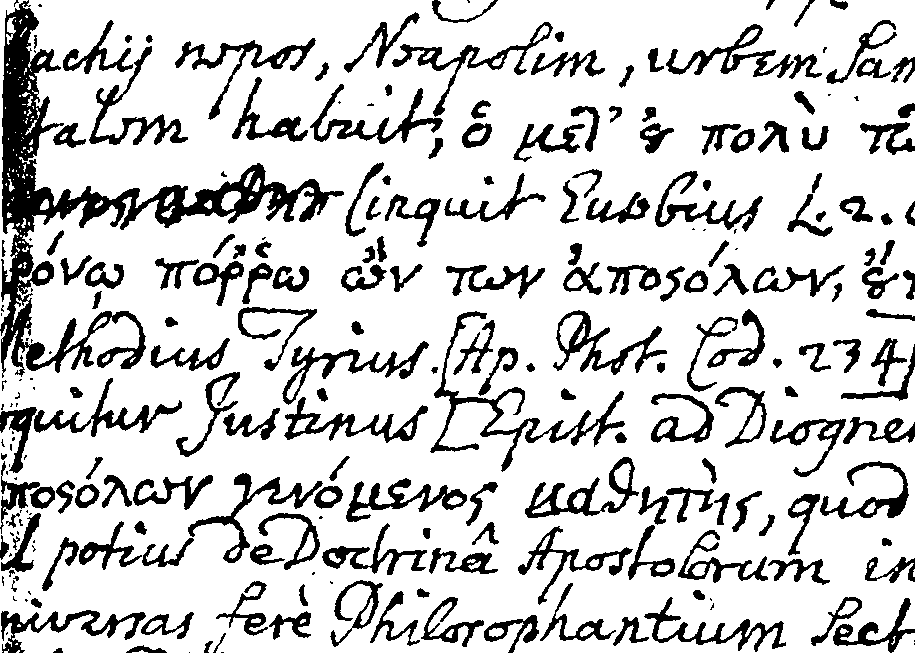 achij nepos, Neapolim, urbem Sam
talem habuit; ὃ μετ' οὐ πολὺ τῶ
(inquit Eusebius L. 2.
ρόνῳ πόῤῥω ὢν των ἀποςόλων,
Methodius Tyrius. [Ap. Phot. Cod. 234]
quitur Justinus [Epist. ad Diogne
ποςόλων γενόμενος μαθητὴς, quod
el potius de Doctrinâ Apostolorum in
niversas ferè Philosophantium Sect